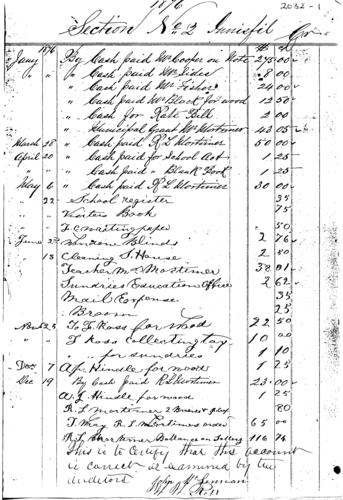 1876
2032-1
Section No 2 Innisfil Cr
1876
Jany " By Cash paid Mr Cooper on Note 275.00
" " " Cash paid Mr Sides 8 00
" Cash paid Mr Fisher 24 00
" Cash paid Mr Black for wood 12 50
" Cash for Rate Bill 2 00
" Municipal Grant Mr Mortimer 43 05
March 28 " Cash paid R L Mortimer 50 00
April 20 " Cash paid for School Act 1 25
" " " Cash paid " Blank Book 1 25
May 6 " Cash paid R L Mortimer 30 00
" 22 School register 35
Visitors Book 75
F.C. writing paper 50
June Window Blinds 2 76
" 13 Cleaning S. House 2 50
Teacher Mr Mortimer 38 01
Sundries Education Office 2 62
Mail Expense 35
Broom 25
To T Ross for Wood 22 50
" " T Ross collecting tax 10 00
" " " for sundries 1 10
Dec 7 A J Hindle for wood 1 25
Dec 19 By Cash Paid R L Mortimer 23.00
A J Hindle for wood 1 25
R. L Mortimer 80
R L Mortimers order 65 00
R L Mortimer Ballance on Sallery 116 74
This is to Certify that this account
is correct as examined by the
auditors
John